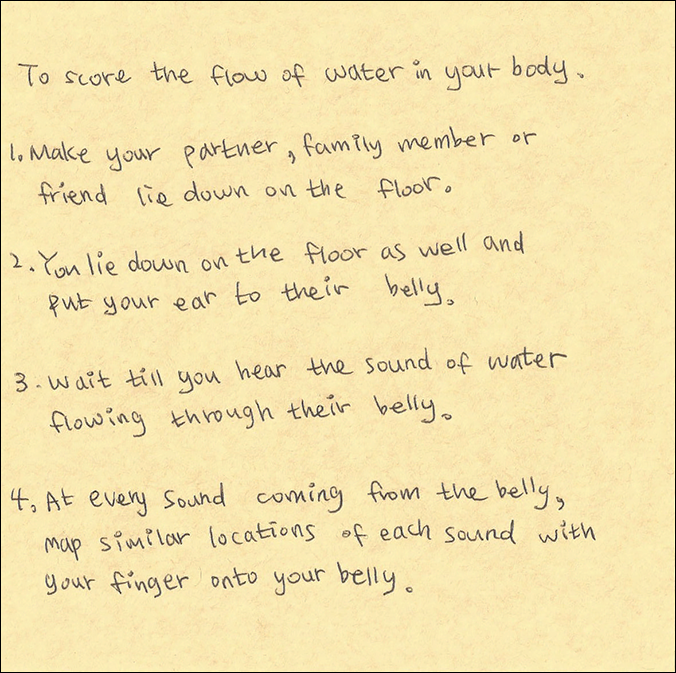 To score the flow of water in your body.
1. Make your partner, family member or
friend lie down on the floor.
2. You lie down on the floor as well and
put your ear to their belly.
3. wait till you hear the sound of water
flowing through their belly.
4. At every sound coming from the belly,
map similar locations of each sound with
your finger onto your belly.